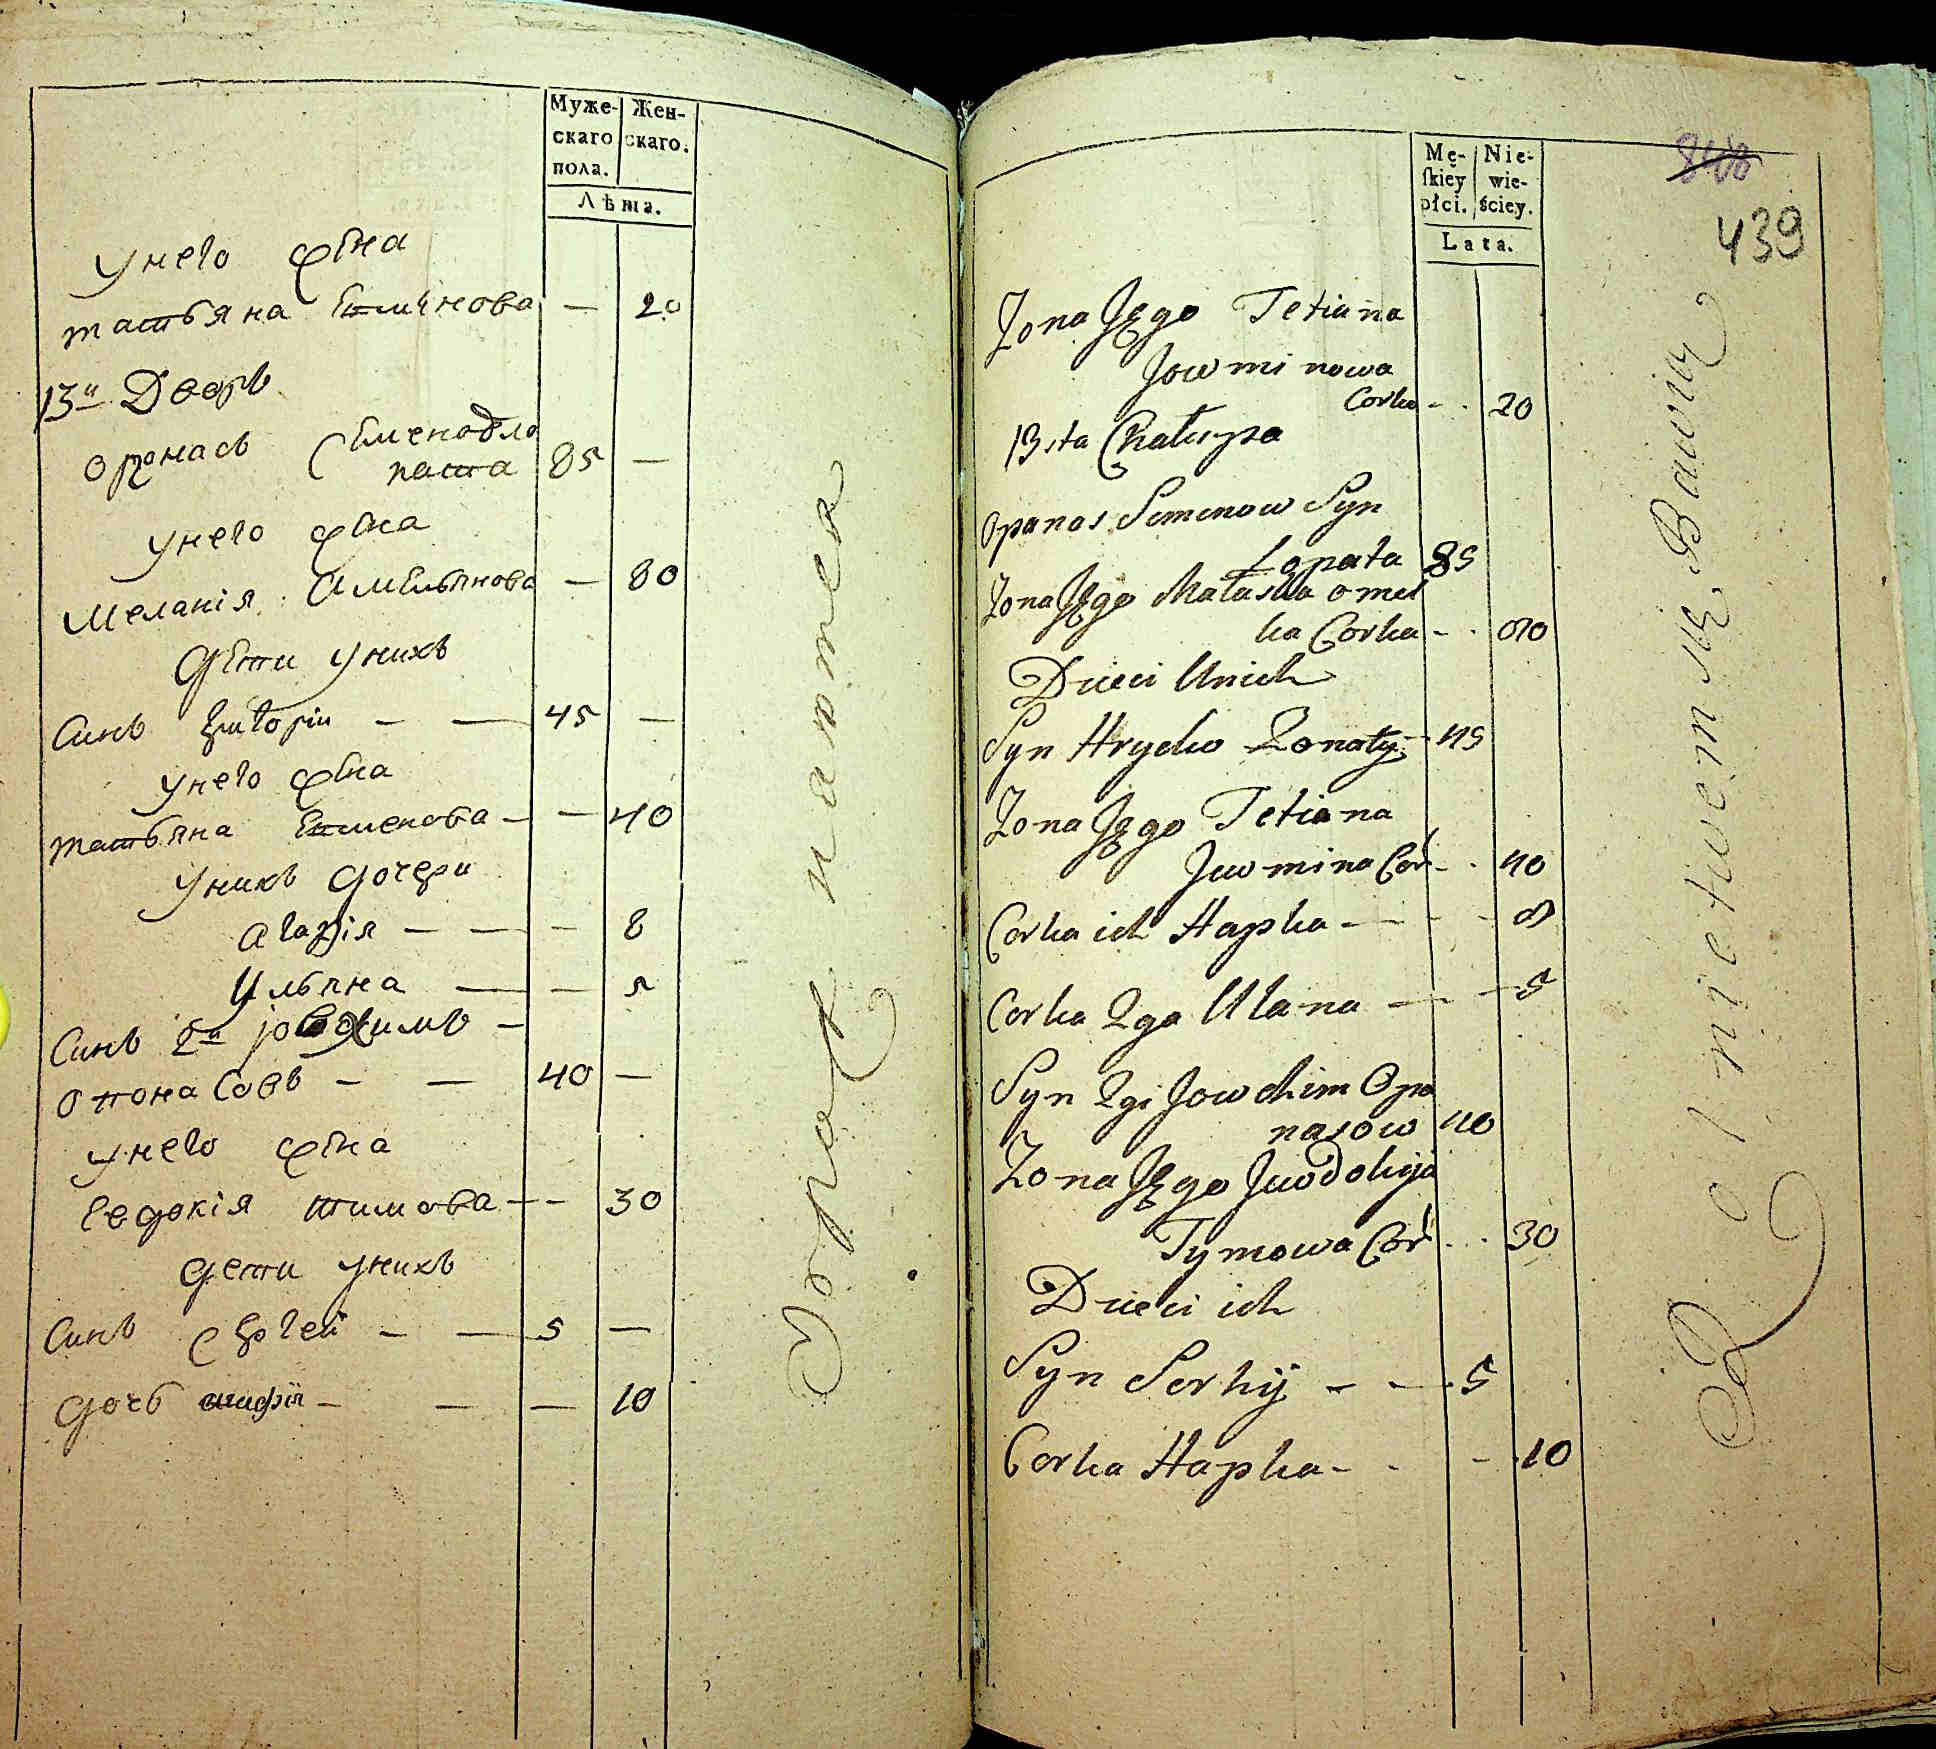 Муже-
скаго
пола.
Жен-
скаго.
Лѣта.
Унего жена
татьяна
20
13й Дворъ
Семеновъ ло
пата 85 —
Унего жена
Меланія Амельянова — 80
Дети унихъ
Синъ Григорій — — 45 —
Унего жена
татьяна — — 40
Унихъ дочери
агафія — — — 8
Ульяна — — 5
Синъ 2й —
40 —
Унего жена
Евдокія тимова — — 30
дети унихъ
Синъ Сергей — — 5 —
дочь — — — 10
Mę-
ſkiey
płci.
Nie-
wie-
ściey.
Lata.
439
Zona Jego Tetiana
Jowminowa
Corka - - 20
13sta Chałupa
Opanas Semenow Syn
Łopata 85
Zona Jego Małaszka omel
ka Corka - - 80
Dzieci Unich
Syn Hryćko Zonaty - 45
Zona Jego Tetiana
Juwmina Cor - - 40
Corka ich Hapka - - - 8
Corka 2ga Ulana - - 5
Syn 2gi Jowchim Opa
nasow 40
Zona Jego Juwdokija
Tymowa Cor - - 30
Dzieci ich
Syn Serhij - - 5
Corka Hapka - - - 10
Rolnictwem się Bawią